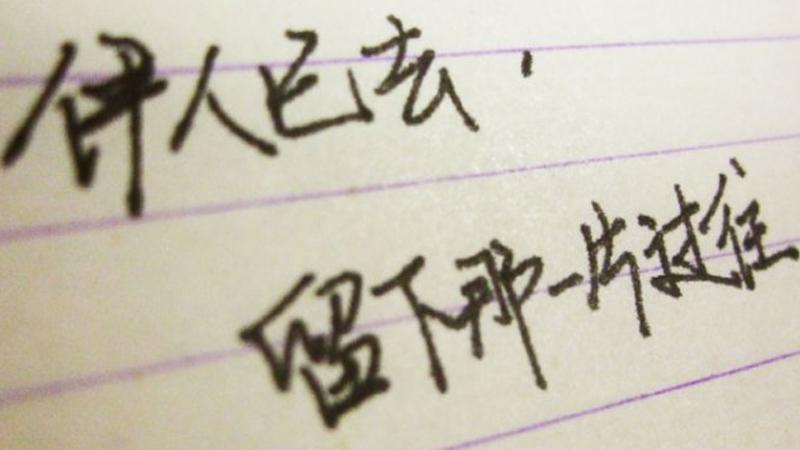 伊人已去，
留下那一片过往